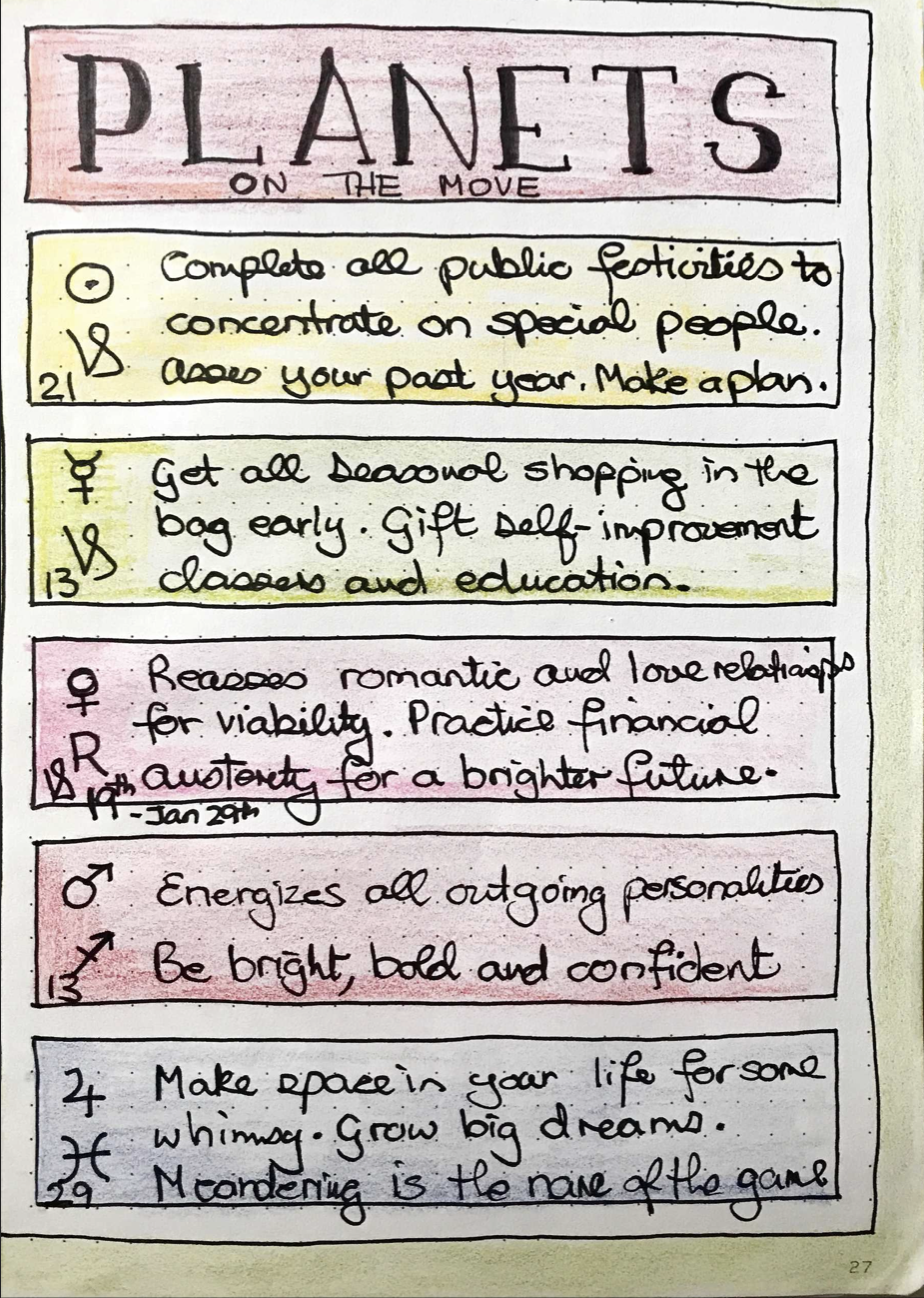 PLANETS
ON THE MOVE
☉ Complete all public festivities to
concentrate on special people.
♑ 21 asses your past year. Make a plan.
☿ Get all seasonal shopping in the
bag early. Gift self-improvement
♑ 13 classes and education.
♀ Reasses romantic and love relationships
R for viability. Practice financial
♑ 19th austerity for a brighter future.
- Jan 29th
♂ Energizes all outgoing personalities
♐ 13 Be bright, bold and confident
♃ Make space in your life for some
♓ whimsy. Grow big dreams.
29 Meandering is the name of the game
27